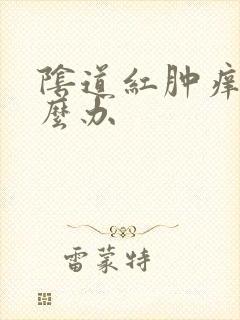 陰道紅肿痒
麼办
雷蒙特